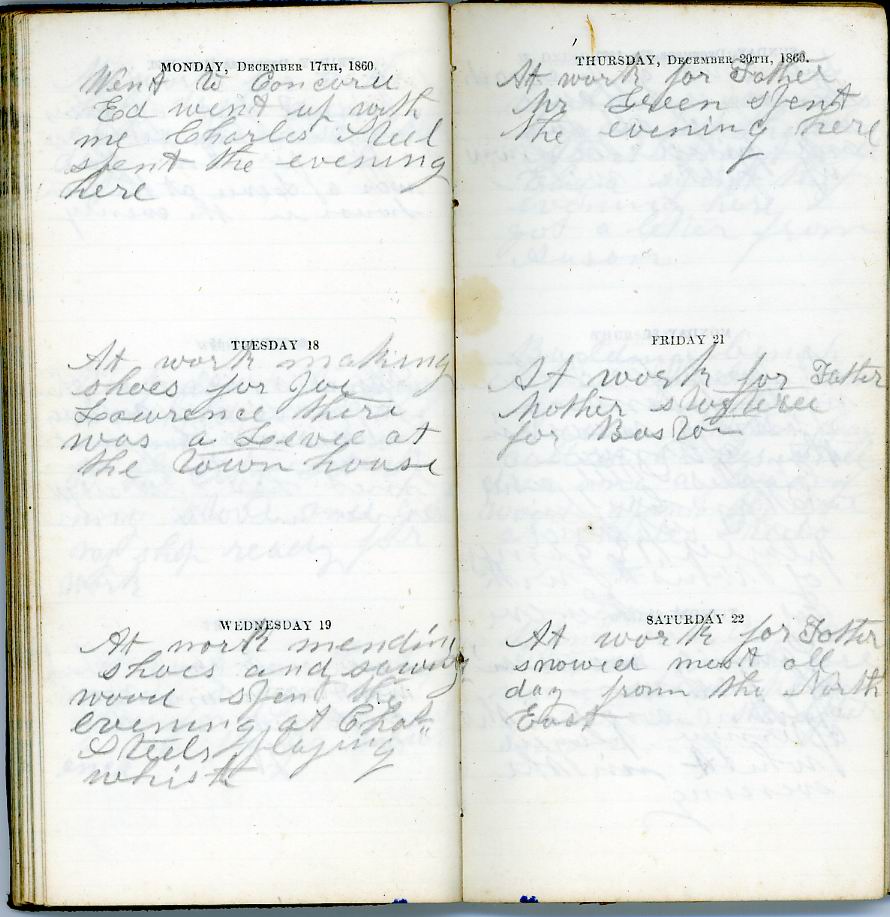 MONDAY, DECEMBER 17TH, 1860
Went to Concord
Ed went up with
me Charles Steel
spent the evening
here
TUESDAY 18
At work making
shoes for Joe
Lawrence there
was a Levee at
the town house
WEDNESDAY 19
At work mending
shoes and sawing
wood spent the
evening at Chas
Steels playing
whist
THURSDAY, DECEMBER 20TH, 1860.
At work for Father
Mr Green spent
the evening here
FRIDAY 21
At work for Father
Mother started
for Boston
SATURDAY 22
At work for Father
snowed most all
day from the North
East